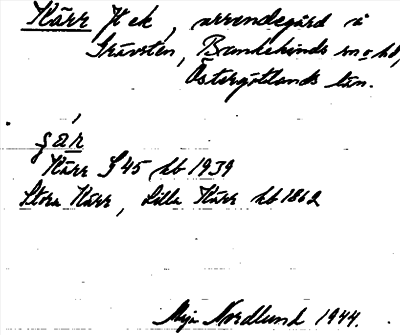 Kärr Hek, arrendegård i
Grävsten, Bankekinds sn o hd,
Östergötlands län.
ʂáṟ
Kärr S 45 hb 1939
Stora Kärr, Lilla Kärr hb 1862
Maja Nordlund 1944.